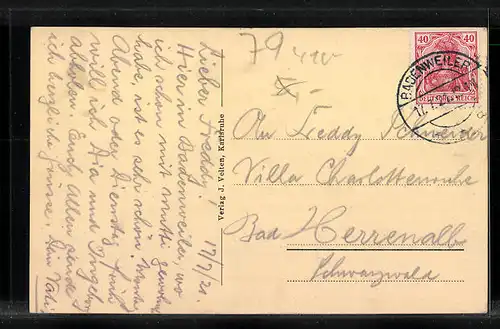 Lieber Freddy! 17/7/21.
Hier in Badenweiler, wo
ich schon mit Mutti gewohnt
habe, ist es sehr schön. Montag
Abend oder Dienstag früh
will ich Dia und
abholen. Euch allen sende
ich herzliche Grüsse. Dein Vati
Verlag J. Velten, Karlsruhe
79
40 40
DEUTSCHES REICH
BADENWEILER
An Freddy Schneider
Villa Charlottenruhe
Bad Herrenalb
Schwarzwald